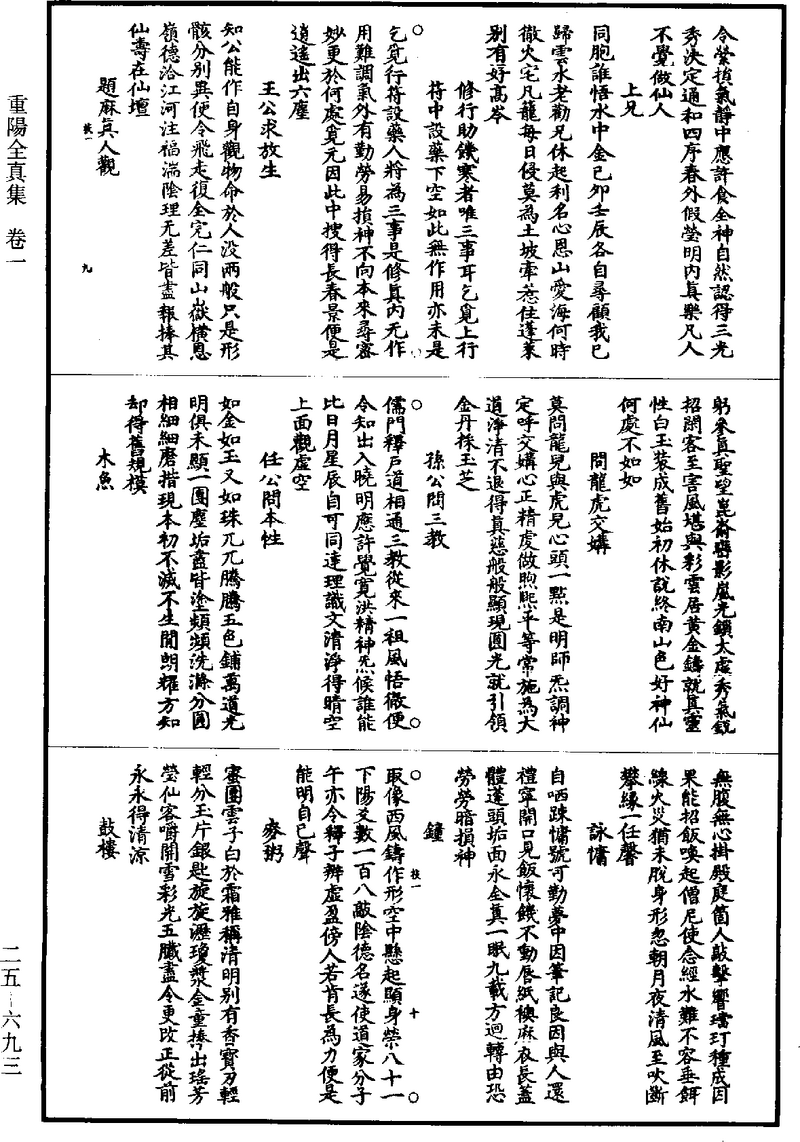 重陽全真集　卷一
令榮損氣靜中應許食全神自然認得三光
秀決定通和四序春外假瑩明內真樂凡人
不覺做仙人
上兄
同胞誰悟水中金已夘壬辰各自尋顧我已
歸雲水老勸兄休起利名心恩山愛海何時
徹火宅凡籠每日侵莫為土坡牽惹住蓬萊
別有好高岑
修行助饑寒者唯三事耳乞覓上行
符中設藥下空如此無作用亦未是
乞覓行符設藥人將為三事是修真內无作
用難調氣外有勤勞易損神不向本來尋密
妙更於何處覓元因此中搜得長春景便是
逍遙出六塵
王公求放生
知公能作自身觀物命於人没兩般只是形
骸分別異便令飛走復全完仁同山嶽橫恩
嶺德洽江河注福湍陰理无差皆盡報捧其
仙壽在仙壇
題麻真人觀
枝一
九
躬參真聖望崑崙礕影嵐光鎖太虛秀氣銳
招閑客至害風堪與彩雲居黄金鑄就真靈
性白玉裝成舊始初休說終南山色好神仙
何處不如如
問龍虎交媾
莫問龍兒與虎兒心頭一點是明師炁調神
定呼交媾心正精虔做煦熈平等常施為大
道淨清不退得真慈般般顯現圓光就引領
金丹採玉芝
孫公問三教
儒門釋戶道相通三教從來一祖風悟徹便
令知出入曉明應許覺寬洪精神炁候誰能
比日月星辰自可同達理識文清淨得晴空
上面觀虛空
任公問本性
如金如玉又如珠兀兀騰騰五色鋪萬道光
明俱未顯一團塵垢盡皆塗頻頻洗滌分圓
相細細磨揩現本初不滅不生閒朗耀方知
却得舊規模
木魚
無腹無心掛殿庭箇人敲擊響璫玎種成因
果能招飯喚起僧尼使念經水難不容垂餌
線火災猶未脫身形忽朝月夜清風至吹斷
攀緣一任馨
詠慵
自哂踈慵號可勤夢中因筆記良因與人還
禮寧開口見飯懷饑不動唇紙襖麻衣長蓋
體蓬頭垢面永全真一眠九載方迴轉由恐
勞勞暗損神
鐘
枝一
十
取像西風鑄作形空中懸起顯身榮八十一
下陽爻數一百八敲陰德名遂使道家分子
午亦令釋子辨虛盈傍人若肯長為力便是
能明自已聲
麥粥
蜜團雲子白於霜雅稱清明別有香寶刀輕
輕分玉片銀匙旋旋瀝瓊漿金童捧出瑤芳
瑩仙客嚼開雪彩光五臟盡令更改正從前
永永得清凉
鼓樓
二五—六九三